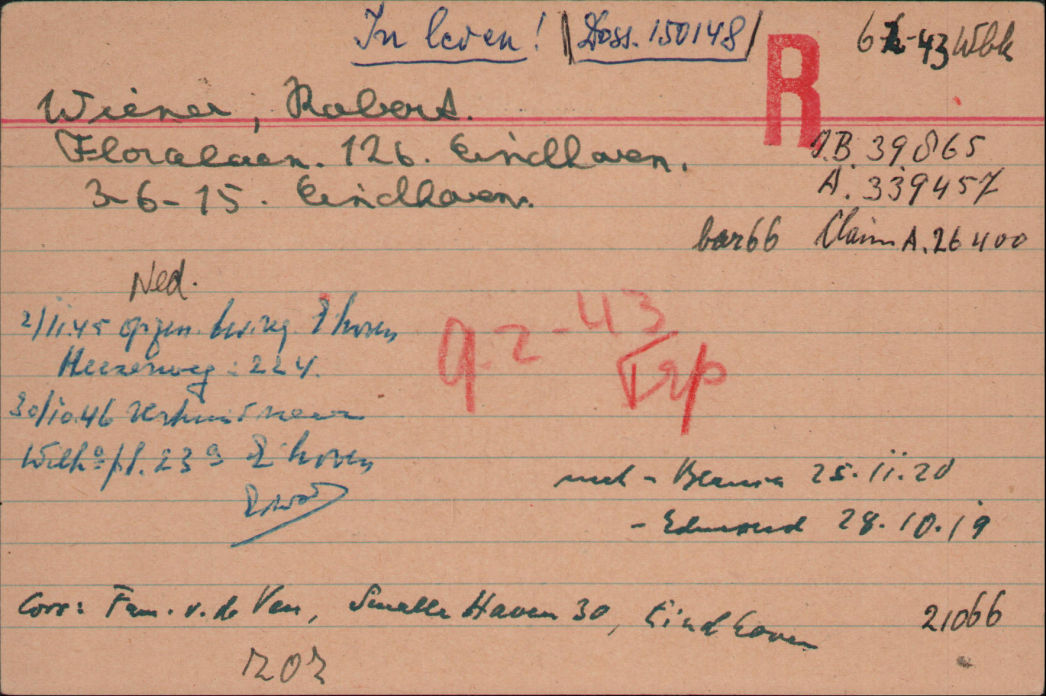 In leven! Doss. 150148
6-2-43 Wbk
R
Wiener, Robert.
Floralaan. 126. Eindhoven.
J.B. 39865
3-6-15. Eindhoven.
A. 339457
bar66 Claim A. 26400
Ned.
2/11.45 opgen. bev. reg. E'hoven
Heezerweg: 224.
9-2-43
Trp
30/10.46 naar
Wilh.a pl. 23a E'hoven
25.11.20
- Edmond 28.10.19
Corr: Fam. v. de Ven, Smalle Haven 30, Eindhoven
21066
202